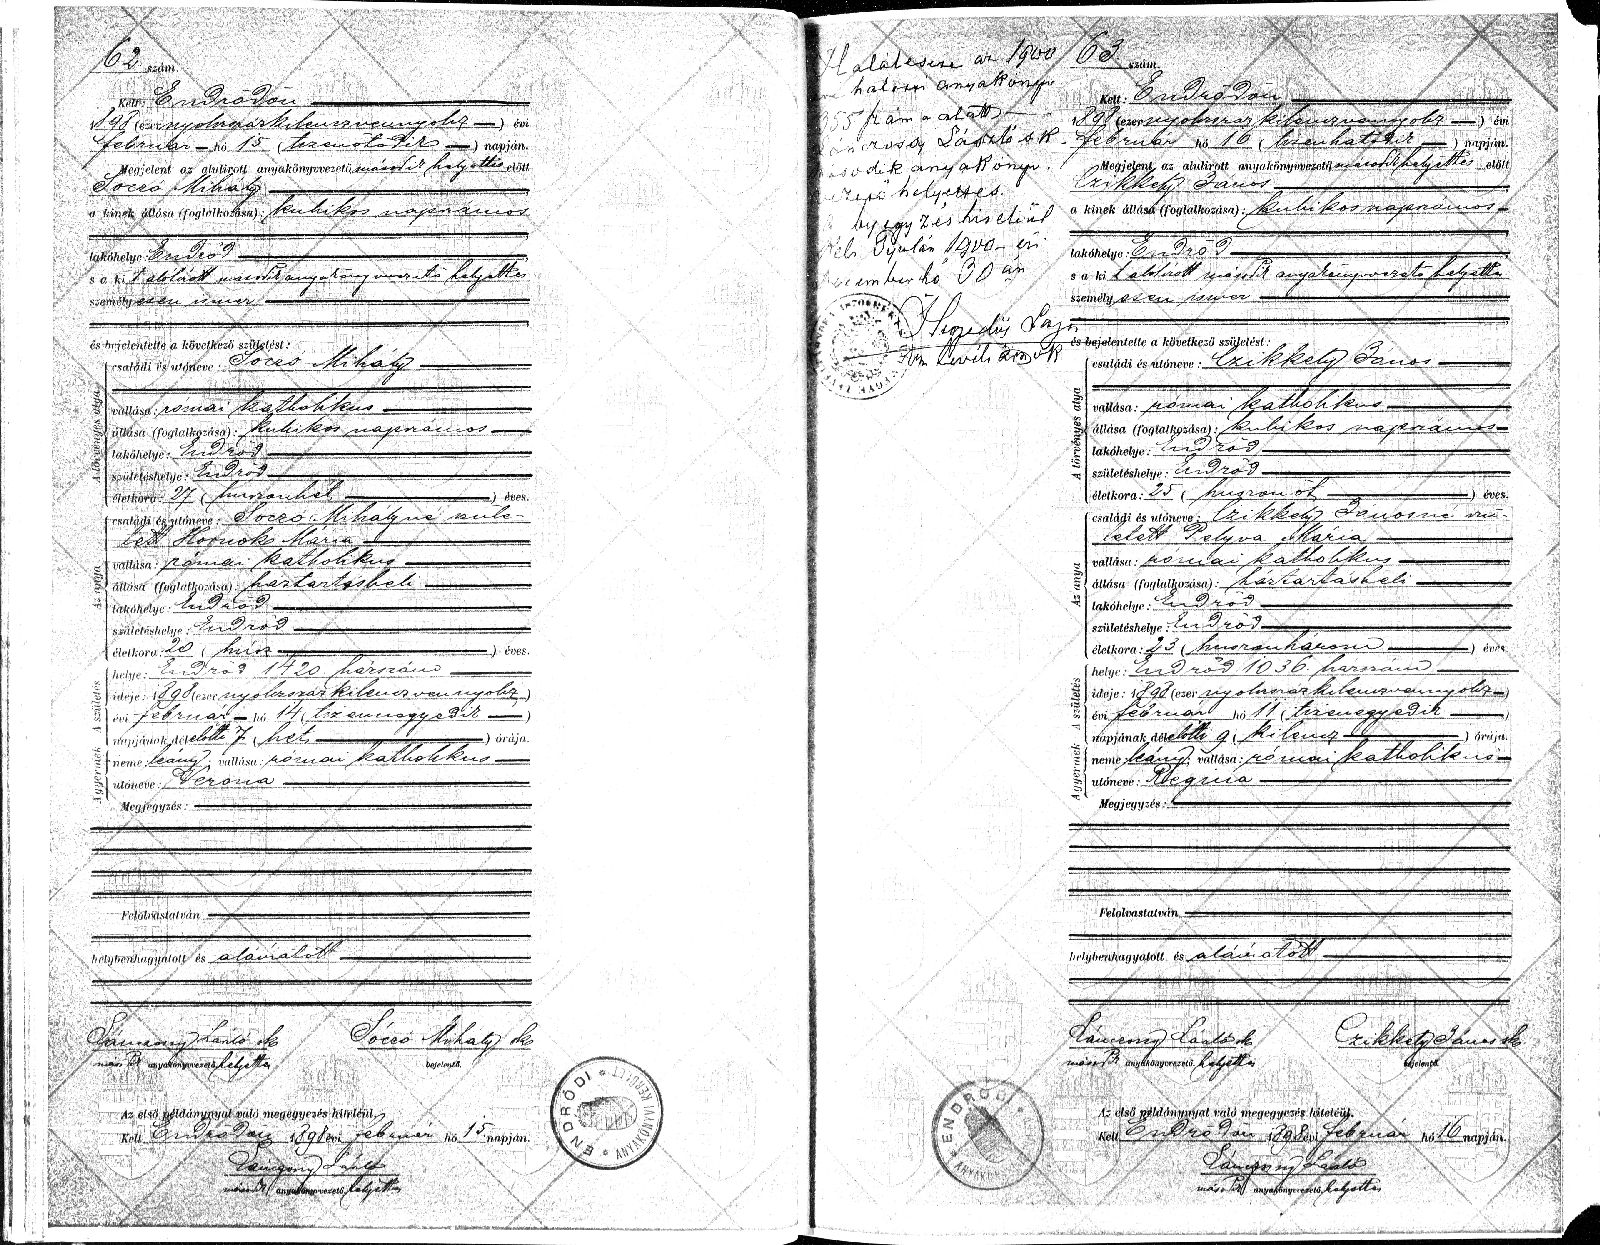 62 szám.
Kelt: Endrődön
1898 (ezernyolczszázkilenczvennyolcz) évi
február hó 15 (tizenötödik) napján.
Megjelent az alulirott anyakönyvvezető, másodk helyettes előtt
Soczó Mihály
a kinek állása (foglalkozása): kubikos napszámos
lakóhelye: Endrőd
s a kit alólirott másodk anyakönyvvezető helyettes
személyesen ismer
és bejelentette a következő születést:
A törvényes atya
családi és utóneve: Soczó Mihály
vallása: római katholikus
állása (foglalkozása): kubikos napszámos
lakóhelye: Endrőd
születéshelye: Endrőd
életkora: 27 (huszonhét) éves.
Az anya
családi és utóneve: Soczó Mihályné szüle-
tett Hornok Mária
vallása: római katholikus
állása (foglalkozása): háztartásbeli
lakóhelye: Endrőd
születéshelye: Endrőd
életkora: 20 (húsz) éves.
A születés
helye: Endrőd 1420 házszám
ideje: 1898 (ezernyolczszázkilenczvennyolcz)
évi február hó 14 (tizennegyedik)
napjának délelőtti 7 (hét) órája.
A gyermek
neme: leány, vallása: római katholikus
utóneve: Verona
Megjegyzés:
Felolvastatván
helybenhagyatott és aláiratott
Lánczosy László sk Soczó Mihály sk
másodk anyakönyvvezető, helyettes bejelentő.
Az első példánynyal való megegyezés hiteléül.
Kelt Endrődön 1898 évi február hó 15 napján.
Lánczosy László
másodk anyakönyvvezető, helyettes
ENDRŐDI * ANYAKÖNYVI KERÜLET *
Halálesete az 1900
halotti anyakönyv
955 szám alatt
László sk
anyakönyv-
helyettes.
bejegyzés hiteléül
Gyulán 1900 évi
hó 30 án
Hegedüs
63 szám.
Kelt: Endrődön
1898 (ezernyolczszázkilenczvennyolcz) évi
február hó 16 (tizenhatodik) napján.
Megjelent az alulirott anyakönyvvezető, másodk helyettes előtt
Czikkely János
a kinek állása (foglalkozása): kubikos napszámos
lakóhelye: Endrőd
s a kit alólirott másodk anyakönyvvezető helyettes
személyesen ismer
és bejelentette a következő születést:
A törvényes atya
családi és utóneve: Czikkely János
vallása: római katholikus
állása (foglalkozása): kubikos napszámos
lakóhelye: Endrőd
születéshelye: Endrőd
életkora: 25 (huszonöt) éves.
Az anya
családi és utóneve: Czikkely Jánosné szü-
letett Pelyva Mária
vallása: római katholikus
állása (foglalkozása): háztartásbeli
lakóhelye: Endrőd
születéshelye: Endrőd
életkora: 23 (huszonhárom) éves.
A születés
helye: Endrőd 1036 házszám
ideje: 1898 (ezernyolczszázkilenczvennyolcz)
évi február hó 11 (tizenegyedik)
napjának délelőtti 9 (kilencz) órája.
A gyermek
neme: leány, vallása: római katholikus
utóneve: Regina
Megjegyzés:
Felolvastatván
helybenhagyatott és aláiratott
Lánczosy László sk Czikkely János sk
másodk anyakönyvvezető, helyettes bejelentő.
Az első példánynyal való megegyezés hiteléül.
Kelt Endrődön 1898 évi február hó 16 napján.
Lánczosy László
másodk anyakönyvvezető, helyettes
ENDRŐDI *